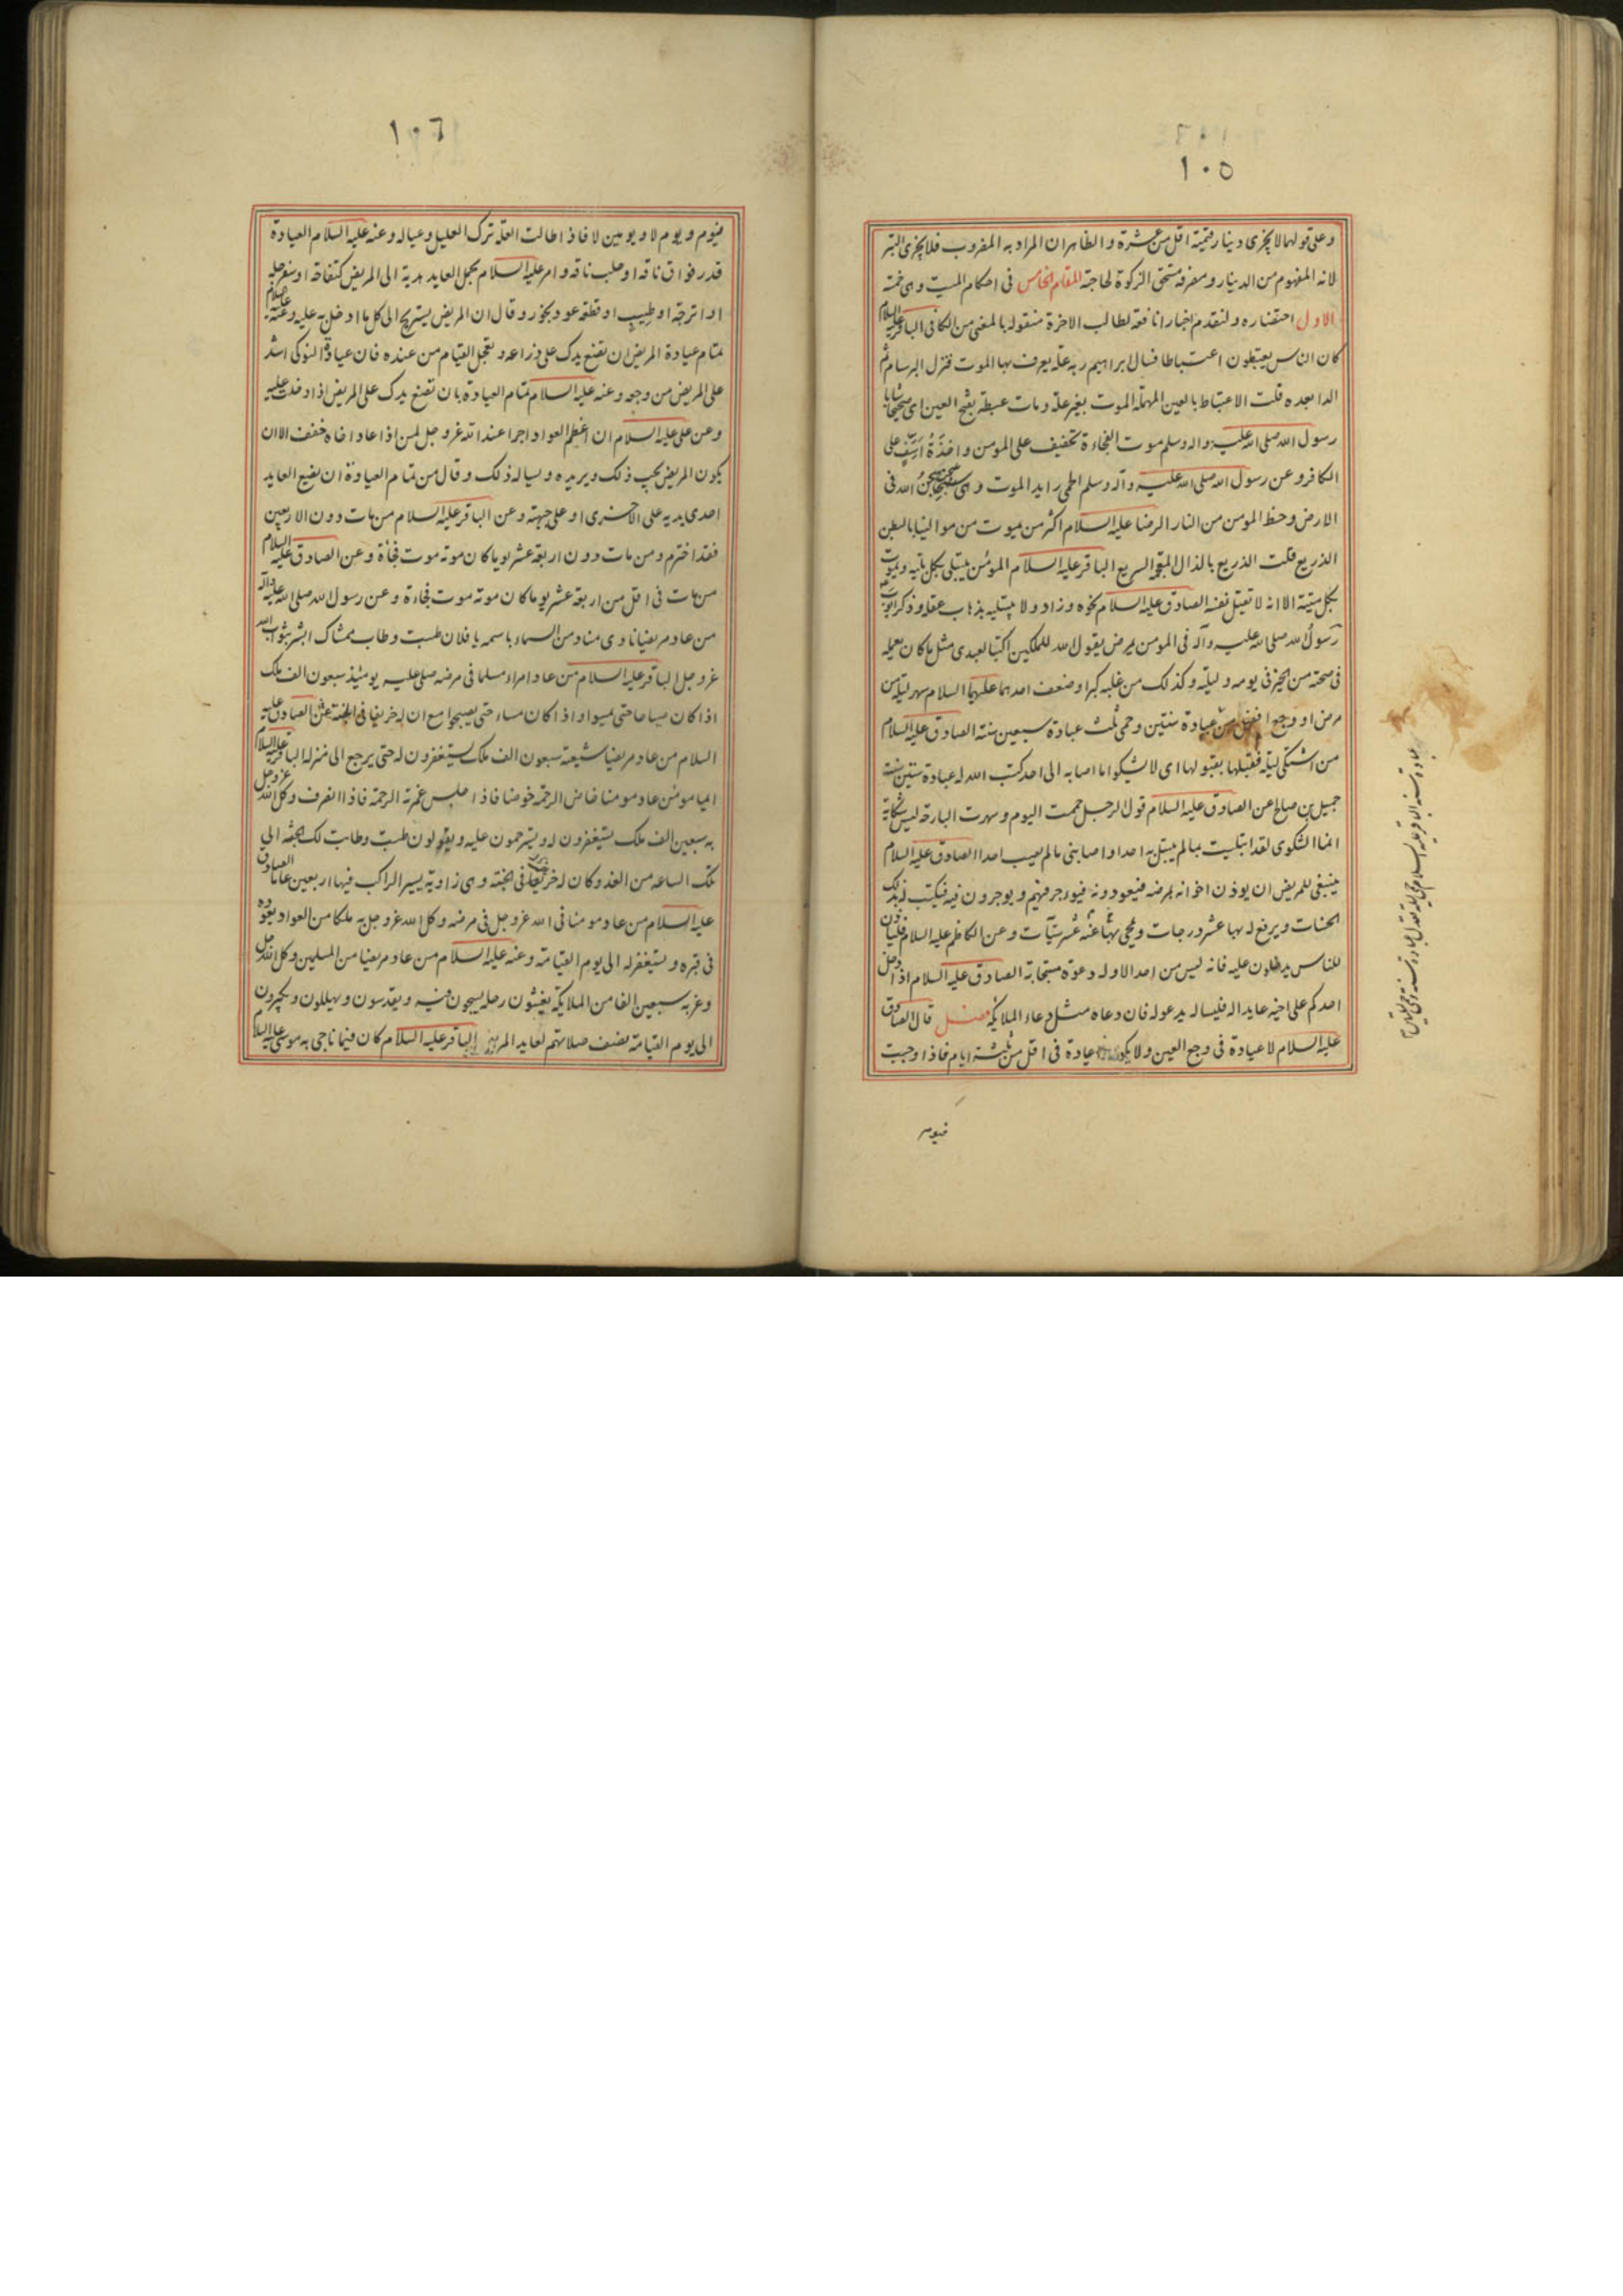 ١٠٥
وعلى قولهما لا يجزى دينار قيمته اقل من عشرة والظاهر ان المراد به المضروب فلا يجزى التبر
لانه المفهوم من الدينار ومصرفه مستحق الزكوة لحاجته المقام الخامس فى احكام الميت وهى خمسة
الاول احتضاره ولنقدم اخبارا نافعة لطالب الاخرة منقولة بالمعنى من الكافى الباقر عليه السلام
كان الناس يعتبطون اعتباطا فسال ابراهيم ربه علة يعرف بها الموت فنزل البرسام ثم
الدا بعده قلت الاعتباط بالعين المهملة الموت بغير علة ومات عبطة بفتح العين اى صحيحا شابا
رسول الله صلى الله عليه واله وسلم موت الفجاءة تخفيف على المومن واخذة اسف على
الكافر وعن رسول الله صلى الله عليه وآله وسلم الحمى رايد الموت وهى سجن الله فى
الارض وحظ المومن من النار الرضا عليه السلام اكثر من يموت من موالينا بالبطن
الذريع قلت الذريع بالذال المعجمة السريع الباقر عليه السلام المومن يبتلى بكل بلية ويموت
بكل ميتة الا انه لا يقتل نفسه الصادق عليه السلام نحوه وزاد ولا يبتليه بذهاب عقله وذكر ايوب
رسول الله صلى الله عليه وآله فى المومن يمرض يقول الله للملكين اكتبا لعبدى مثل ما كان يعمله
فى صحته من الخير فى يومه وليلته وكذلك من غلبه كبر او ضعف احدهما عليهما السلام سهر ليلة من
مرض او وجع افضل من عبادة سنتين وحمى ثلث عبادة سبعين سنة الصادق عليه السلام
من اشتكى ليلة فقبلها بقبولها اى لا يشكو ما اصابه الى احد كتب الله له عبادة ستين سنة
جميل بن صالح عن الصادق عليه السلام قول الرجل حممت اليوم وسهرت البارحة ليس شكاية
انما الشكوى لقد ابتليت بما لم يبتل به احد او اصابنى ما لم يصب احدا الصادق عليه السلام
ينبغى للمريض ان يوذن اخوانه بمرضه فيعودونه فيوجر فيهم ويوجرون فيه فيكتب له بذلك
الحسنات ويرفع له بها عشر درجات ويمحى بها عنه عشر سيآت وعن الكاظم عليه السلام فلياذن
للناس يدخلون عليه فانه ليس من احد الا وله دعوة مستجابة الصادق عليه السلام اذا دخل
احدكم على اخيه عايدا له فليساله يدعو له فان دعاه مثل دعاء الملايكة فصل قال الصادق
عليه السلام لا عيادة فى وجع العين ولا يكون عيادة فى اقل من ثلثة ايام فاذا وجبت
فيوم
١٠٦
فيوم ويوم لا ويومين لا فاذا طالت العلة ترك العليل وعياله وعنه عليه السلام العيادة
قدر فواق ناقة او حلب ناقة وامر عليه السلام بحمل العايد هدية الى المريض كتفاحة او سفرجلة
او اترجة او طيب او قطعة عود بخور وقال ان المريض يستريح الى كل ما ادخل به عليه وعنه عليه السلام
تمام عيادة المريض ان تضع يدك على ذراعه وتعجل القيام من عنده فان عيادة النوكى اشد
على المريض من وجعه وعنه عليه السلام تمام العيادة بان تضع يدك على المريض اذا دخلت عليه
وعن على عليه السلام ان اعظم العواد اجرا عند الله عز وجل لمن اذا عاد اخاه خفف الا ان
يكون المريض يحب ذلك ويريده ويساله ذلك وقال من تمام العيادة ان يضع العايد
احدى يديه على الاخرى او على جبهته وعن الباقر عليه السلام من مات دون الاربعين
فقد اخترم ومن مات دون اربعة عشر يوما كان موته موت فجأة وعن الصادق عليه السلام
من مات فى اقل من اربعة عشر يوما كان موته موت فجاءة وعن رسول الله صلى الله عليه وآله
من عاد مريضا نادى مناد من السماء باسمه يا فلان طبت وطاب ممشاك ابشر بثواب الله
عز وجل الباقر عليه السلام من عاد امراء مسلما فى مرضه صلى عليه يومئذ سبعون الف ملك
اذا كان صباحا حتى يمسوا واذا كان مساء حتى يصبحوا مع ان له خريفا فى الجنة عن الصادق عليه
السلام من عاد مريضا شيعته سبعون الف ملك يستغفرون له حتى يرجع الى منزله الباقر عليه السلام
ايما مومن عاد مومنا خاض الرحمة خوضا فاذا جلس غمرته الرحمة فاذا انصرف وكل الله عز وجل
به سبعين الف ملك يستغفرون له ويترحمون عليه ويقولون طبت وطابت لك الجنة الى
تلك الساعة من الغد وكان له خريف فى الجنة وهى زاوية يسير الراكب فيها اربعين عاما الصادق
عليه السلام من عاد مومنا فى الله عز وجل فى مرضه وكل الله عز وجل به ملكا من العواد يعوده
فى قبره ويستغفر له الى يوم القيامة وعنه عليه السلام من عاد مريضا من المسلمين وكل الله عز وجل
وعز به سبعين الفا من الملايكة يغشون رحله يسبحون فيه ويقدسون ويهللون ويكبرون
الى يوم القيامة نصف صلاتهم لعايد المريض الباقر عليه السلام كان فيما ناجى به موسى عليه السلام